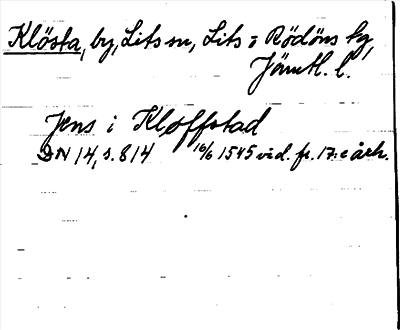 Klösta, by, Lits sn, Lits o Rödöns tg,
Jämtl. l.
Jens i Kloffstad
DN 14, s. 814 16/6 1545 vid. fr. 17:e årh.